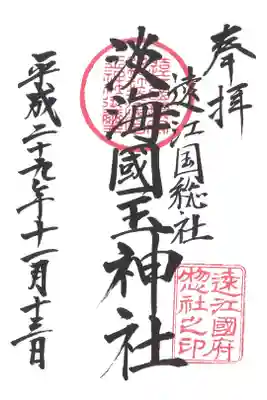 奉拝
遠江国総社
淡海國玉神社
平成二十九年十一月十三日
遠江國府
惣社之印